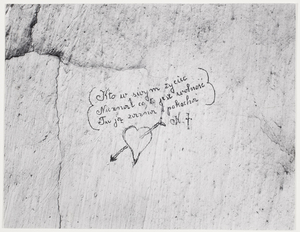 Kto w swym życiu
Nie znał co to jest wolność
Tu ją zazna i pokocha
H. J.